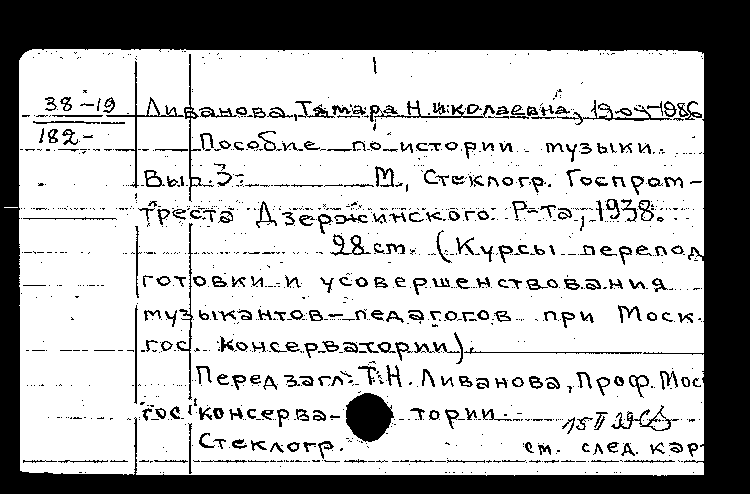 38-19 Ливанова, Тамара Николаевна, 1909-1986
182- Пособие по истории музыки.
Вып. 3. М., Стеклогр. Госпром-
треста Дзержинского Р-та, 1938.
28 ст. (Курсы перепод
готовки и усовершенствования
музыкантов-педагогов при Моск.
гос. консерватории).
Перед загл.: Т.Н. Ливанова, Проф. Мос
гос. консерва- тории.
15 II 39
Стеклогр. см. след. кар